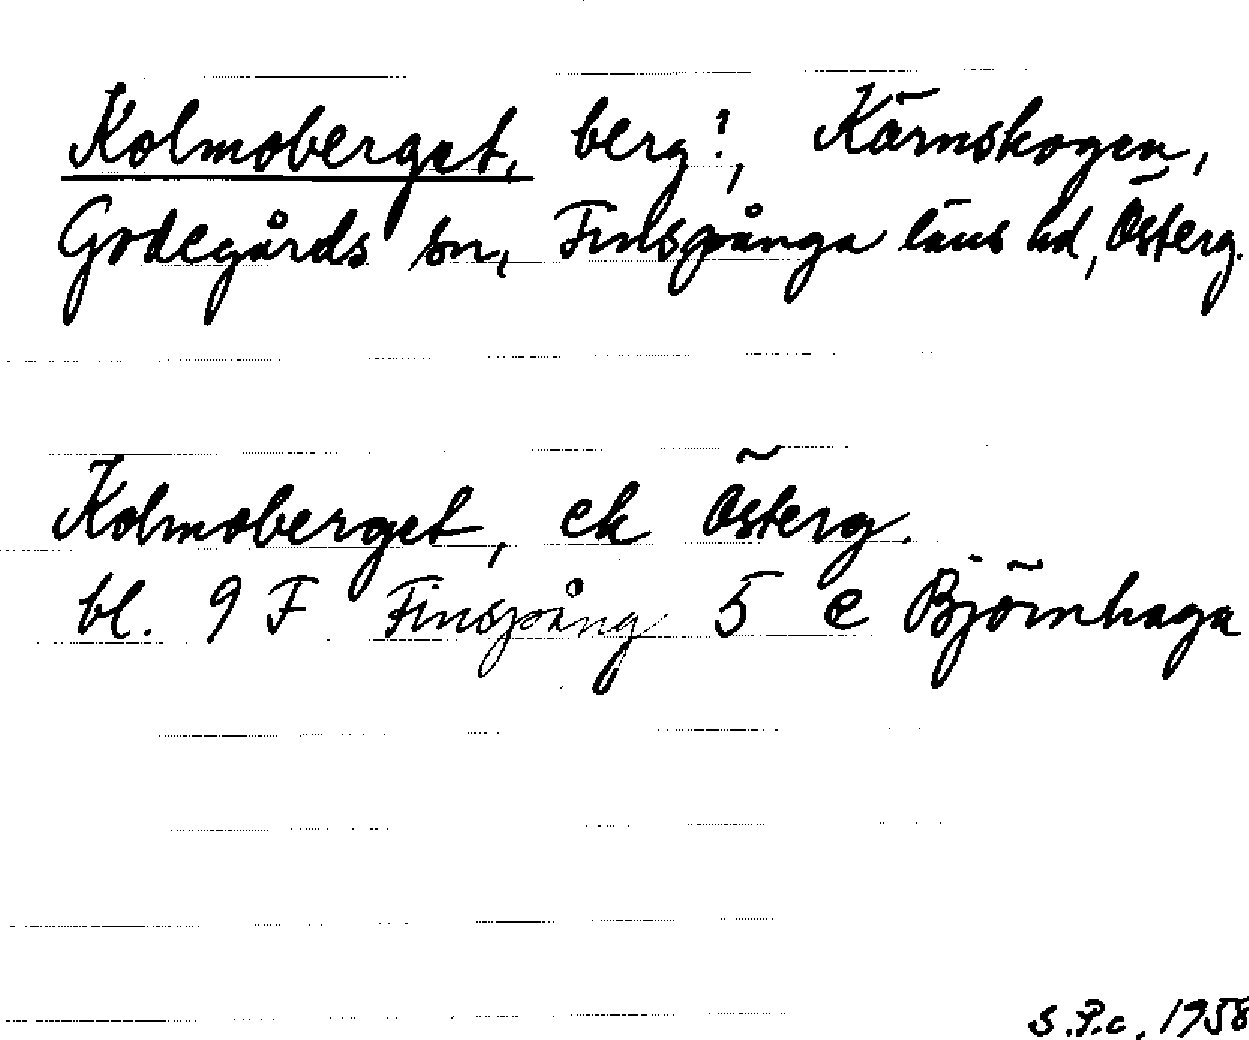 Kolmoberget, berg!, Kärnskogen,
Godegårds sn, Finspånga läns hd, Österg.
Kolmoberget, ek Österg.
bl. 9 F Finspång 5 e Björnhaga
S.P.c. 1958